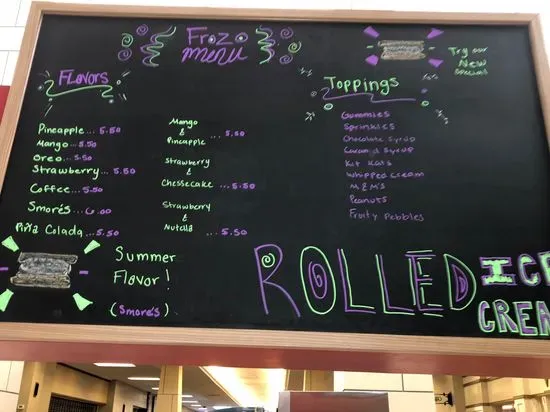 Frozo
menu
Try our
New
Special
Flavors
Pineapple... 5.50
Mango... 5.50
Oreo... 5.50
Strawberry... 5.50
Coffee... 5.50
Smorés... 6.00
Piña Colada... 5.50
Mango
&
Pineapple ... 5.50
Strawberry
&
Chessecake ... 5.50
Strawberry
&
Nutella ... 5.50
Toppings
Gummies
Sprinkles
Chocolate Syrup
Caramel Syrup
Kit Kats
Whipped Cream
M&M's
Peanuts
Fruity Pebbles
Summer
Flavor!
(Smore's)
ROLLED
ICE
CREA